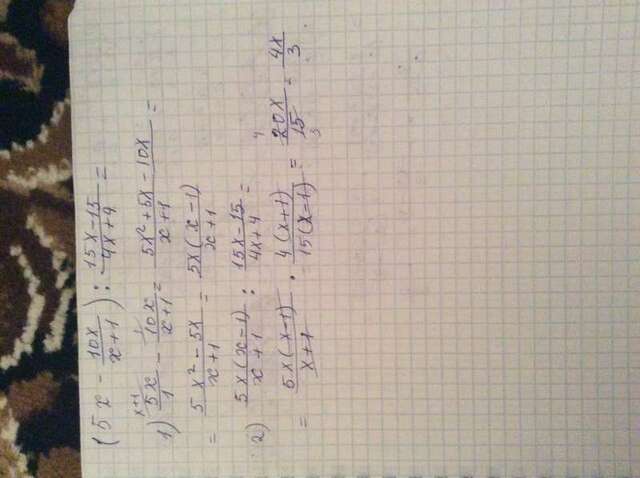 (5x - 10x/(x+1)) : (15x-15)/(4x+4) =
1) 5x/1 (x+1) - 10x/(x+1) (1) = (5x² + 5x - 10x)/(x+1) =
= (5x² - 5x)/(x+1) = 5x(x-1)/(x+1)
2) 5x(x-1)/(x+1) : (15x-15)/(4x+4) =
= 5x(x-1)/(x+1) · 4(x+1)/15(x-1) = 20x/15 (4, 3) = 4x/3